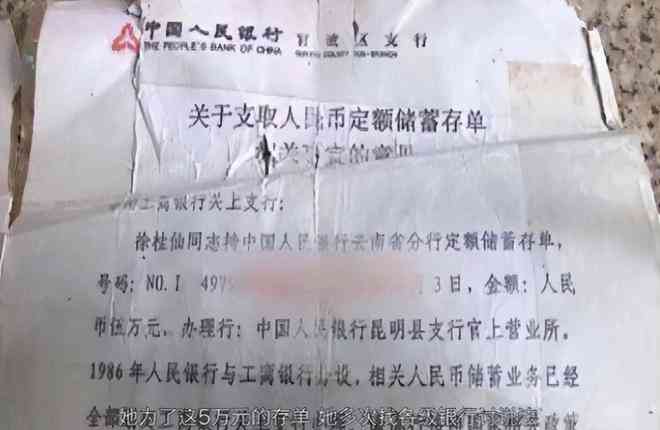 中国人民银行 官渡区支行
THE PEOPLE'S BANK OF CHINA SUB-BRANCH
关于支取人民币定额储蓄存单
相关 的意见
工商银行关上支行：
徐桂仙同志持中国人民银行云南省分行定额储蓄存单，
号码：NO.I 497 3日，金额：人民
币伍万元，办理行：中国人民银行昆明县支行官上营业所。
1986年人民银行与工商银行分设，相关人民币储蓄业务已经
全部
她为了这5万元的存单 她多次找各级银行